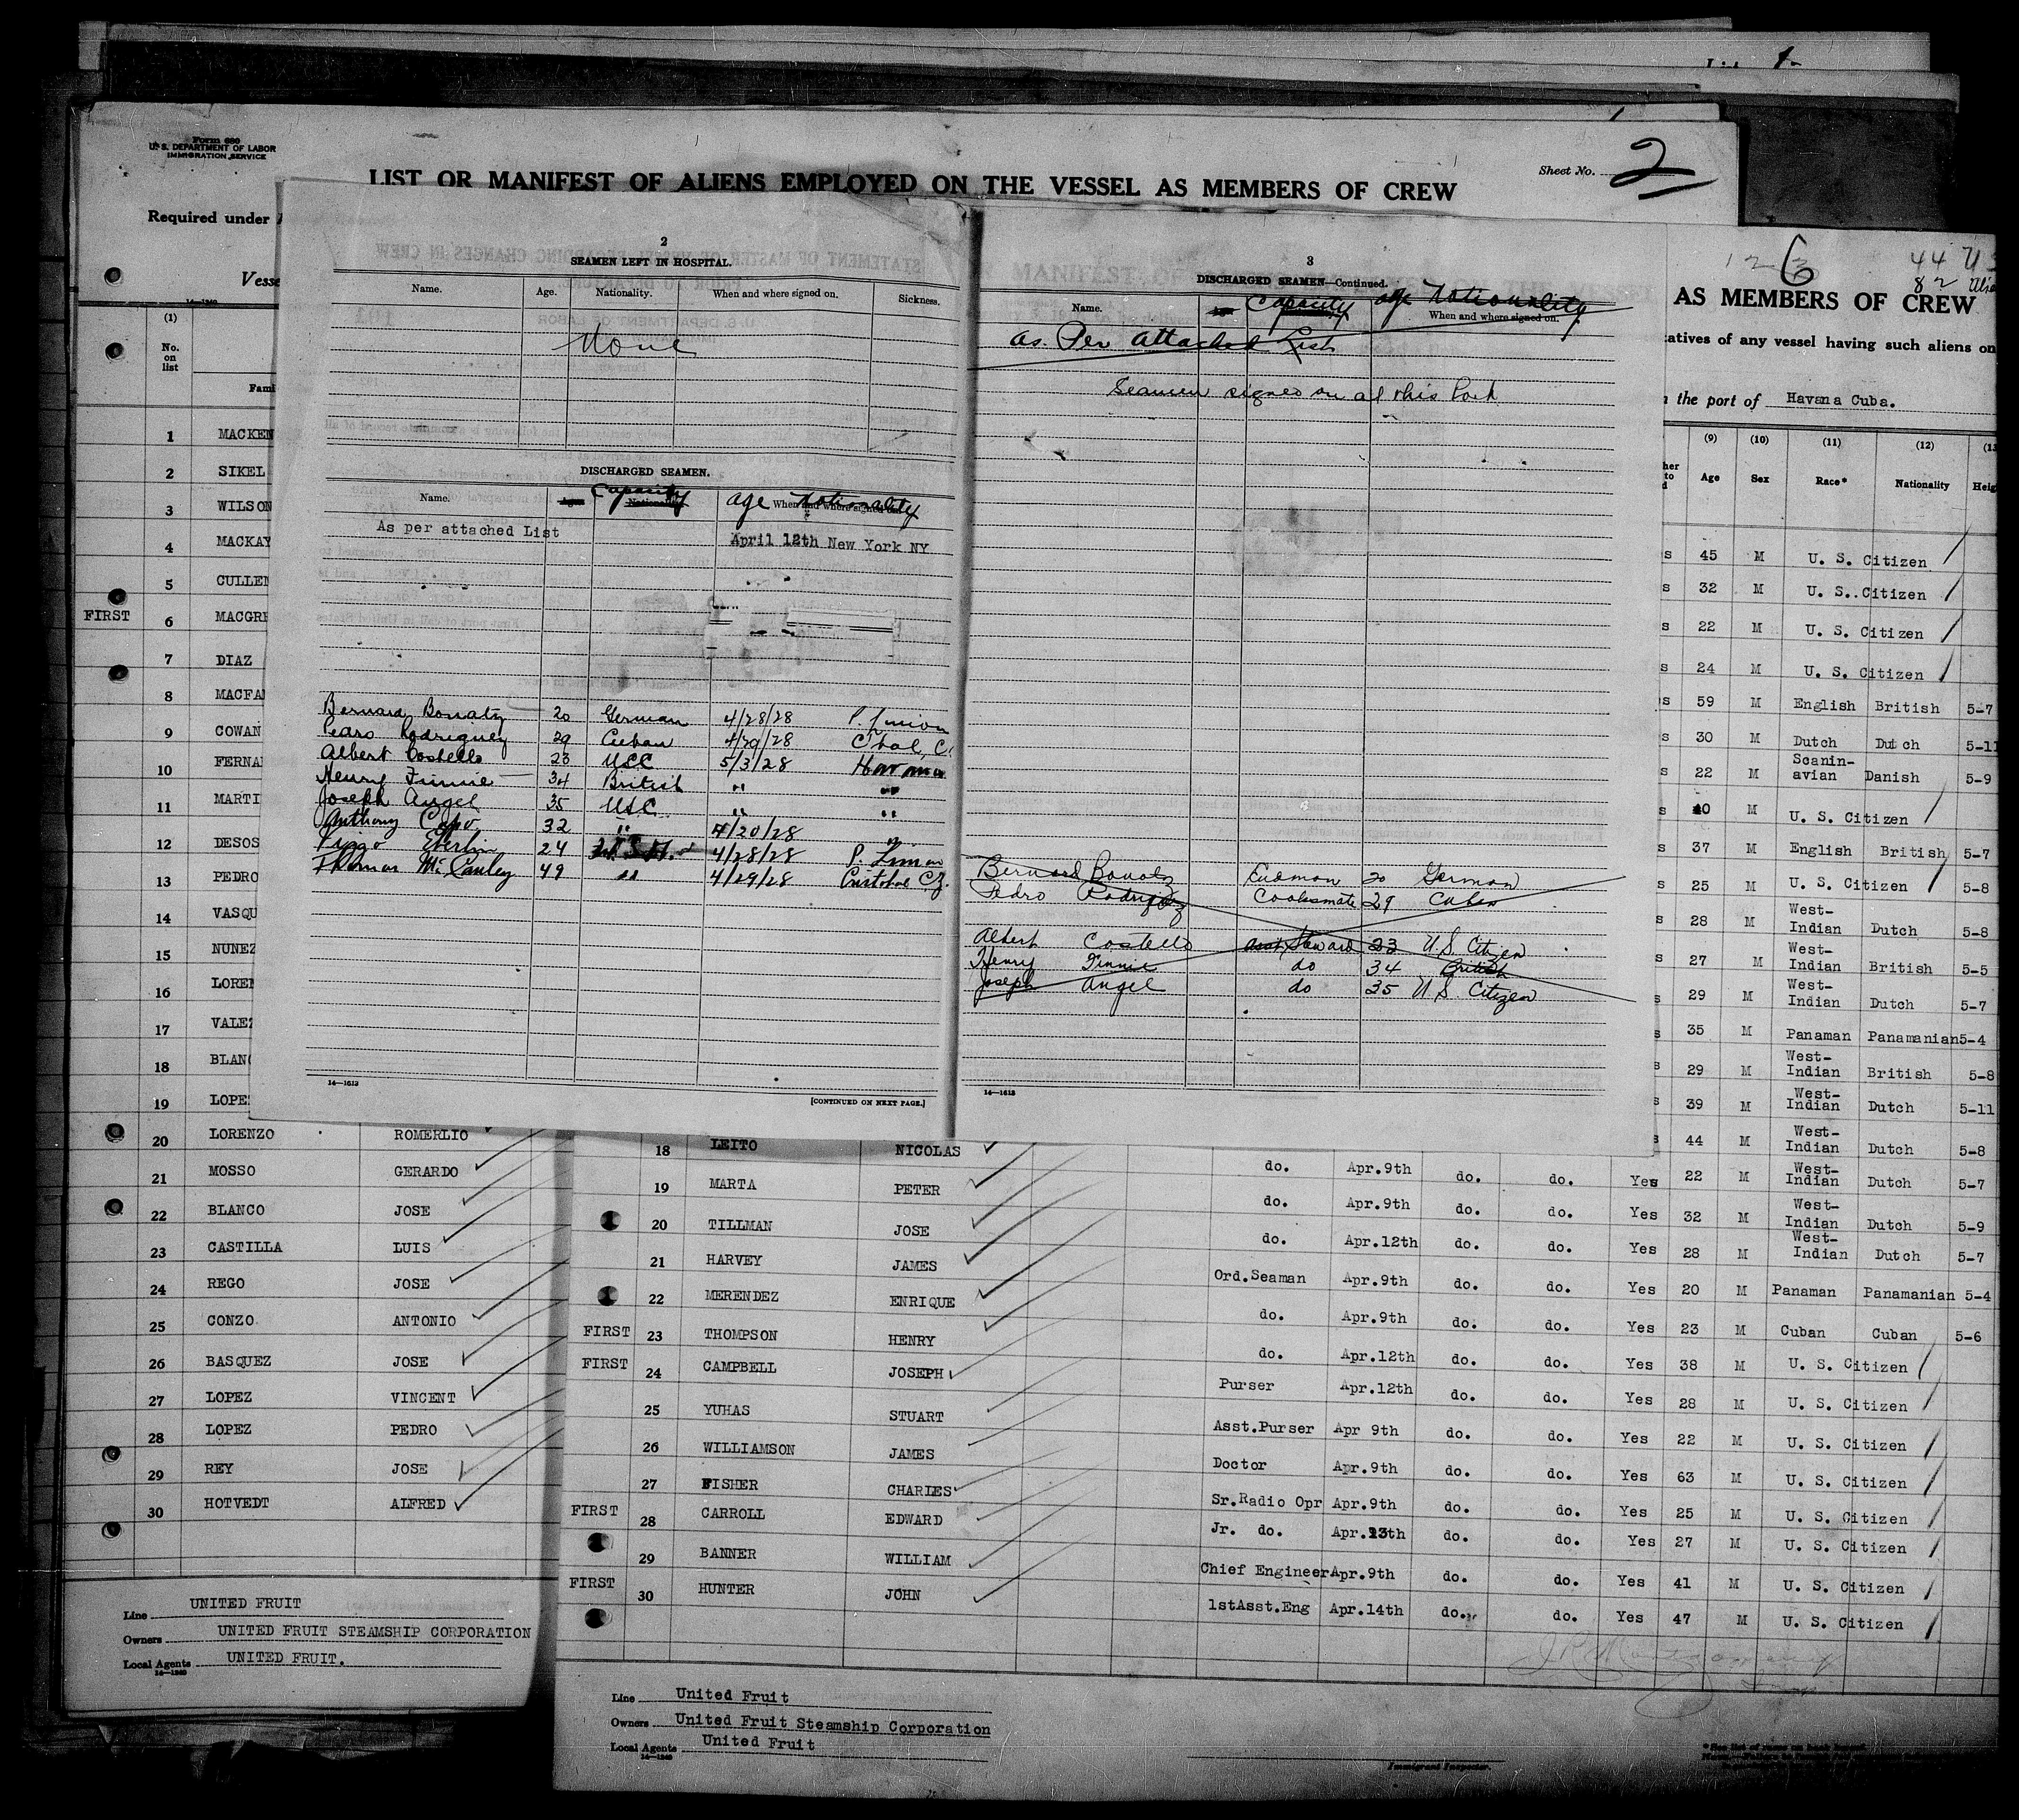 Form 680
U. S. DEPARTMENT OF LABOR
IMMIGRATION SERVICE
Sheet No. 2
LIST OR MANIFEST OF ALIENS EMPLOYED ON THE VESSEL AS MEMBERS OF CREW
Required under
Vesse
14—1240
(1)
No. on list
Fami
1 MACKEN
2 SIKEL
3 WILSON
4 MACKAY
5 CULLEN
FIRST 6 MACGRE
7 DIAZ
8 MACFA
9 COWAN
10 FERNA
11 MARTI
12 DESOS
13 PEDRO
14 VASQU
15 NUNEZ
16 LOREN
17 VALEZ
18 BLANC
19 LOPEZ
20 LORENZO ROMERLIO
21 MOSSO GERARDO
22 BLANCO JOSE
23 CASTILLA LUIS
24 REGO JOSE
25 CONZO ANTONIO
26 BASQUEZ JOSE
27 LOPEZ VINCENT
28 LOPEZ PEDRO
29 REY JOSE
30 HOTVEDT ALFRED
Line UNITED FRUIT
Owners UNITED FRUIT STEAMSHIP CORPORATION
Local Agents UNITED FRUIT.
14—1240
2
SEAMEN LEFT IN HOSPITAL.
Name. Age. Nationality. When and where signed on. Sickness.
None
DISCHARGED SEAMEN.
Name. Age. Nationality. When and where signed on.
Capacity age Nationality
As per attached List April 12th New York NY
Bernard Bonatz 20 German 4/28/28 P. Limon
Pedro Rodriguez 29 Cuban 4/29/28 C'bal, C.
Albert Costello 23 USC 5/3/28 Havana
Henry Finnie 34 British " "
Joseph Angel 35 USC " "
Anthony Capo 32 " 4/20/28 "
Viggo Eberlin 24 4/28/28 P. Limon
Thomas McCauley 49 " 4/29/28 Cristobal C.Z.
14—1613
[CONTINUED ON NEXT PAGE.]
3
DISCHARGED SEAMEN—Continued.
Name. Capacity age Nationality
When and where signed on.
as Per attached List
Seamen signed on at this Port
Bernard Bonatz Endman 20 German
Pedro Rodriguez Cooksmate 29 Cuban
Albert Costello Asst. Steward 23 U.S. Citizen
Henry Finnie do 34 British
Joseph Angel do 35 U.S. Citizen
14—1613
6
12 3
44 U S
82
AS MEMBERS OF CREW
tatives of any vessel having such aliens on
the port of Havana Cuba.
(9) (10) (11) (12) (13
Age Sex Race* Nationality Heig
s 45 M U. S. Citizen
s 32 M U. S. Citizen
s 22 M U. S. Citizen
s 24 M U. S. Citizen
s 59 M English British 5-7
s 30 M Dutch Dutch 5-11
s 22 M Scanin-avian Danish 5-9
s 40 M U. S. Citizen
s 37 M English British 5-7
s 25 M U. S. Citizen 5-8
s 28 M West-Indian Dutch 5-8
s 27 M West-Indian British 5-5
s 29 M West-Indian Dutch 5-7
s 35 M Panaman Panamanian 5-4
s 29 M West-Indian British 5-8
s 39 M West-Indian Dutch 5-11
s 44 M West-Indian Dutch 5-8
18 LEITO NICOLAS do. Apr.9th do. do. Yes 22 M West-Indian Dutch 5-7
19 MARTA PETER do. Apr.9th do. do. Yes 32 M West-Indian Dutch 5-9
20 TILLMAN JOSE do. Apr.12th do. do. Yes 28 M West-Indian Dutch 5-7
21 HARVEY JAMES Ord.Seaman Apr.9th do. do. Yes 20 M Panaman Panamanian 5-4
22 MERENDEZ ENRIQUE do. Apr.9th do. do. Yes 23 M Cuban Cuban 5-6
FIRST 23 THOMPSON HENRY do. Apr.12th do. do. Yes 38 M U. S. Citizen
FIRST 24 CAMPBELL JOSEPH Purser Apr.12th do. do. Yes 28 M U. S. Citizen
25 YUHAS STUART Asst.Purser Apr 9th do. do. Yes 22 M U. S. Citizen
26 WILLIAMSON JAMES Doctor Apr.9th do. do. Yes 63 M U. S. Citizen
27 FISHER CHARLES Sr.Radio Opr Apr.9th do. do. Yes 25 M U. S. Citizen
FIRST 28 CARROLL EDWARD Jr. do. Apr.13th do. do. Yes 27 M U. S. Citizen
29 BANNER WILLIAM Chief Engineer Apr.9th do. do. Yes 41 M U. S. Citizen
FIRST 30 HUNTER JOHN 1stAsst.Eng Apr.14th do. do. Yes 47 M U. S. Citizen
Line United Fruit
Owners United Fruit Steamship Corporation
Local Agents United Fruit
14—1240
Immigrant Inspector.